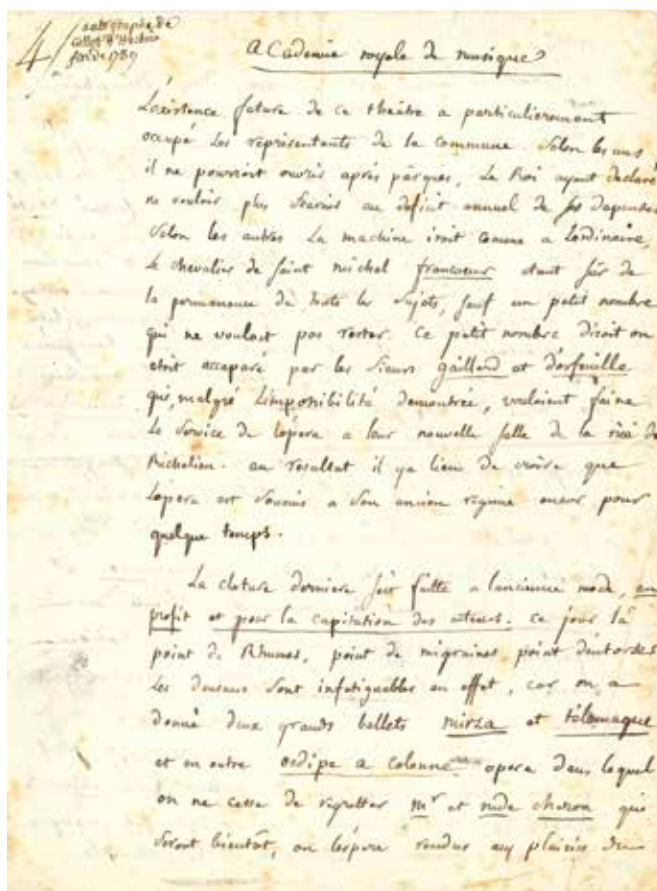 4/ autographe de
Collot d'Herbois
fin de 1789
academie royale de musique
L'existence future de ce théatre a particulierement
occupé les représentants de la commune. Selon les uns
il ne pourroit ouvrir après pâques, Le Roi ayant declaré
ne vouloir plus fournir au deficit annuel de ses depenses
Selon les autres La machine iroit comme a Lordinaire,
Le chevalier de saint michel francoeur etant sûr de
la permanence de touts les Sujets, sauf un petit nombre
qui ne vouloit pas rester. Ce petit nombre disoit on
etoit accaparé par les Sieurs gaillard et d'orfeuille
qui, malgré Limposibilité demontrée, vouloient faire
Le Service de Lopéra a leur nouvelle salle de la rue de
Richelieu. au resultat il ya lieu de croire que
Lopera est soumis a son ancien regime encor pour
quelque temps.
La cloture derniere fut faitte a lancienne mode, au
profit et pour la capitation des acteurs. Ce jour la
point de Rhumes, point de migraines, point dentorses
Les danseurs sont infatiguables en effet, car on a
donné deux grands ballets mirza et télemaque
et en outre oedipe a colonne opera dans lequel
on ne cesse de regretter mr et mde cheron qui
seront bientôt, on lespere rendus aux plaisirs du